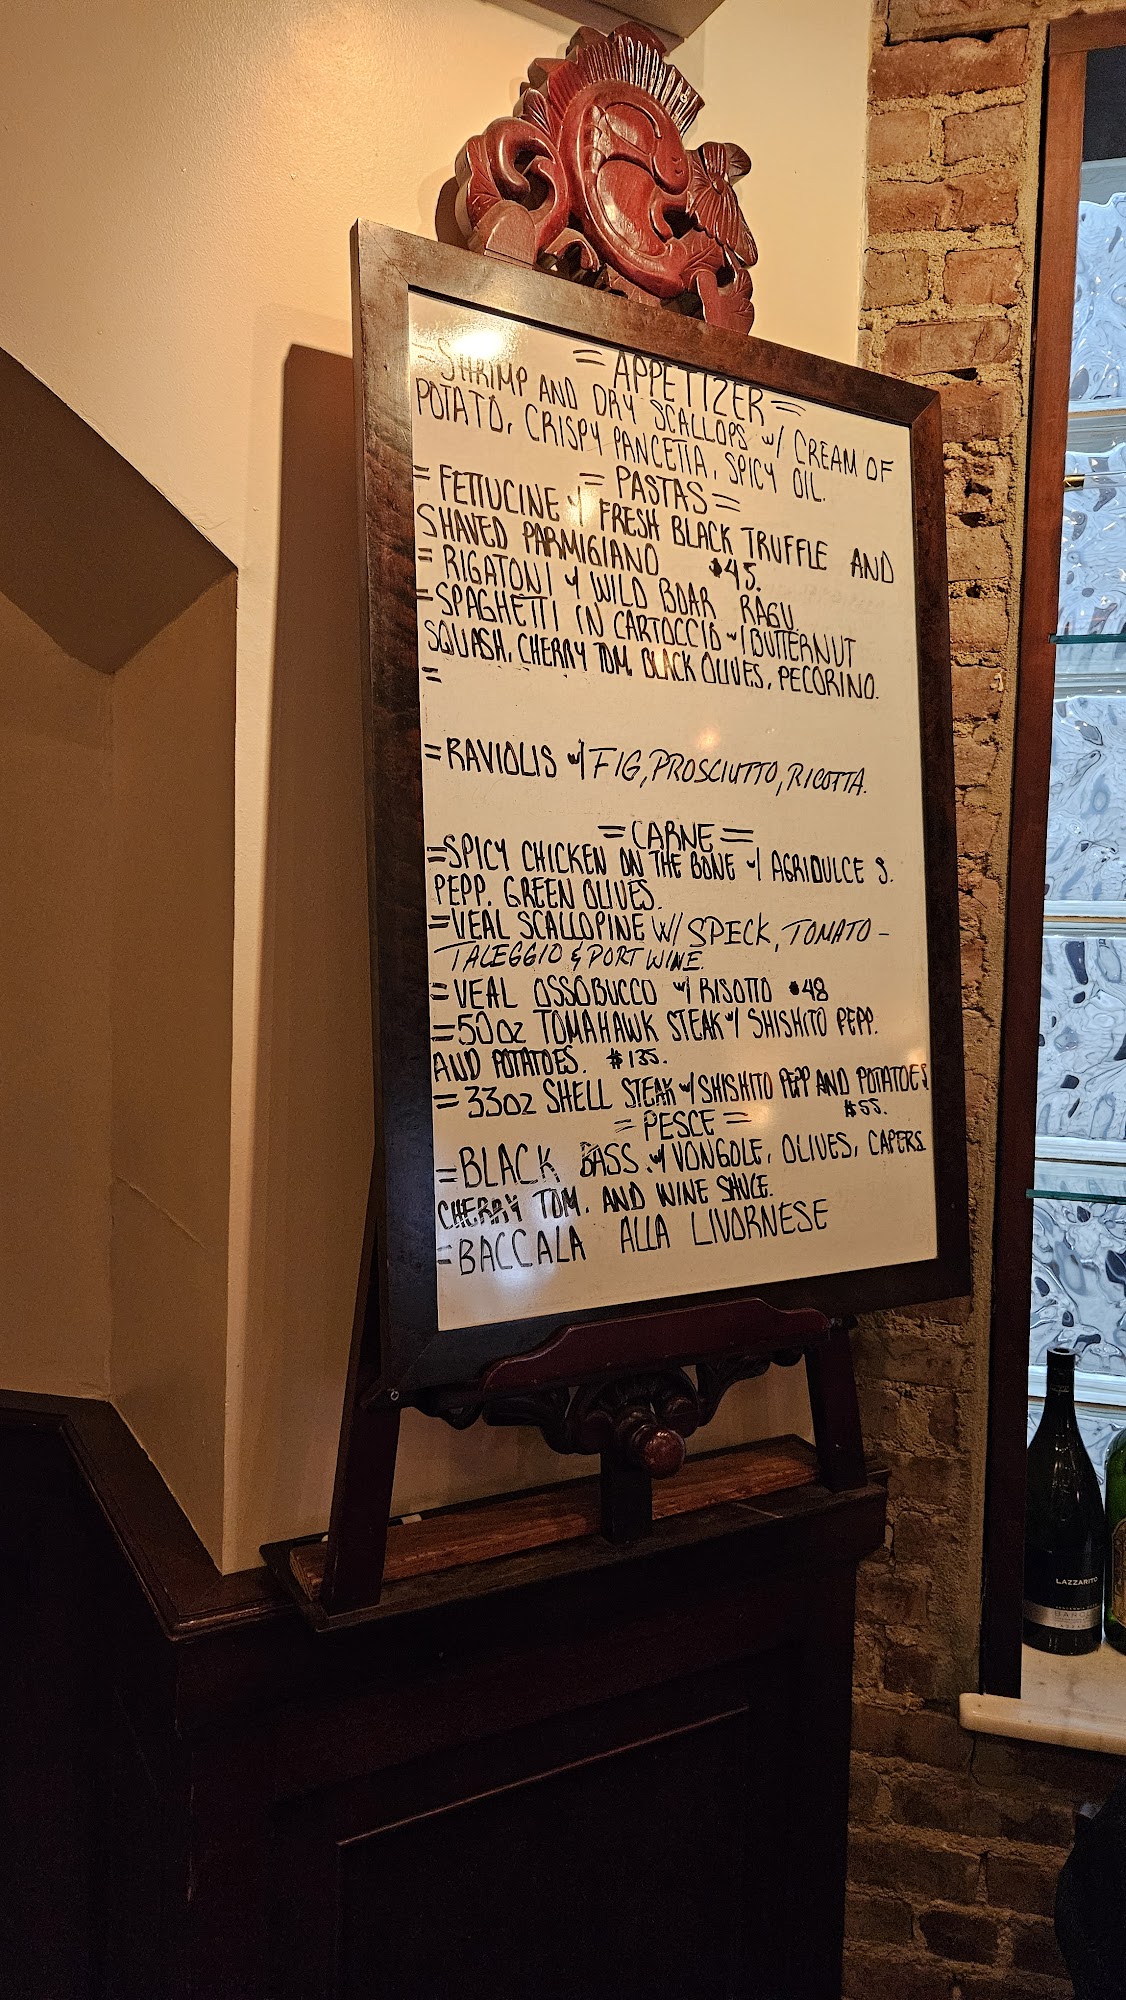 = APPETIZER =
=SHRIMP AND DRY SCALLOPS w/ CREAM OF
POTATO, CRISPY PANCETTA, SPICY OIL.
= PASTAS =
= FETTUCINE w/ FRESH BLACK TRUFFLE AND
SHAVED PARMIGIANO $45.
= RIGATONI w/ WILD BOAR RAGU.
=SPAGHETTI IN CARTOCCIO w/ BUTTERNUT
SQUASH, CHERRY TOM, BLACK OLIVES, PECORINO.
=
=RAVIOLIS w/ FIG, PROSCIUTTO, RICOTTA.
=CARNE=
=SPICY CHICKEN ON THE BONE w/ AGRIDULCE S.
PEPP. GREEN OLIVES.
=VEAL SCALLOPINE W/ SPECK, TOMATO-
TALEGGIO & PORT WINE.
=VEAL OSSOBUCCO w/ RISOTTO $48
=50oz TOMAHAWK STEAK w/ SHISHITO PEPP.
AND POTATOES. $135.
=33oz SHELL STEAK w/ SHISHITO PEPP AND POTATOES
$55.
= PESCE =
=BLACK BASS. w/ VONGOLE, OLIVES, CAPERS
CHERRY TOM. AND WINE SAUCE.
=BACCALA ALLA LIVORNESE
LAZZARITO